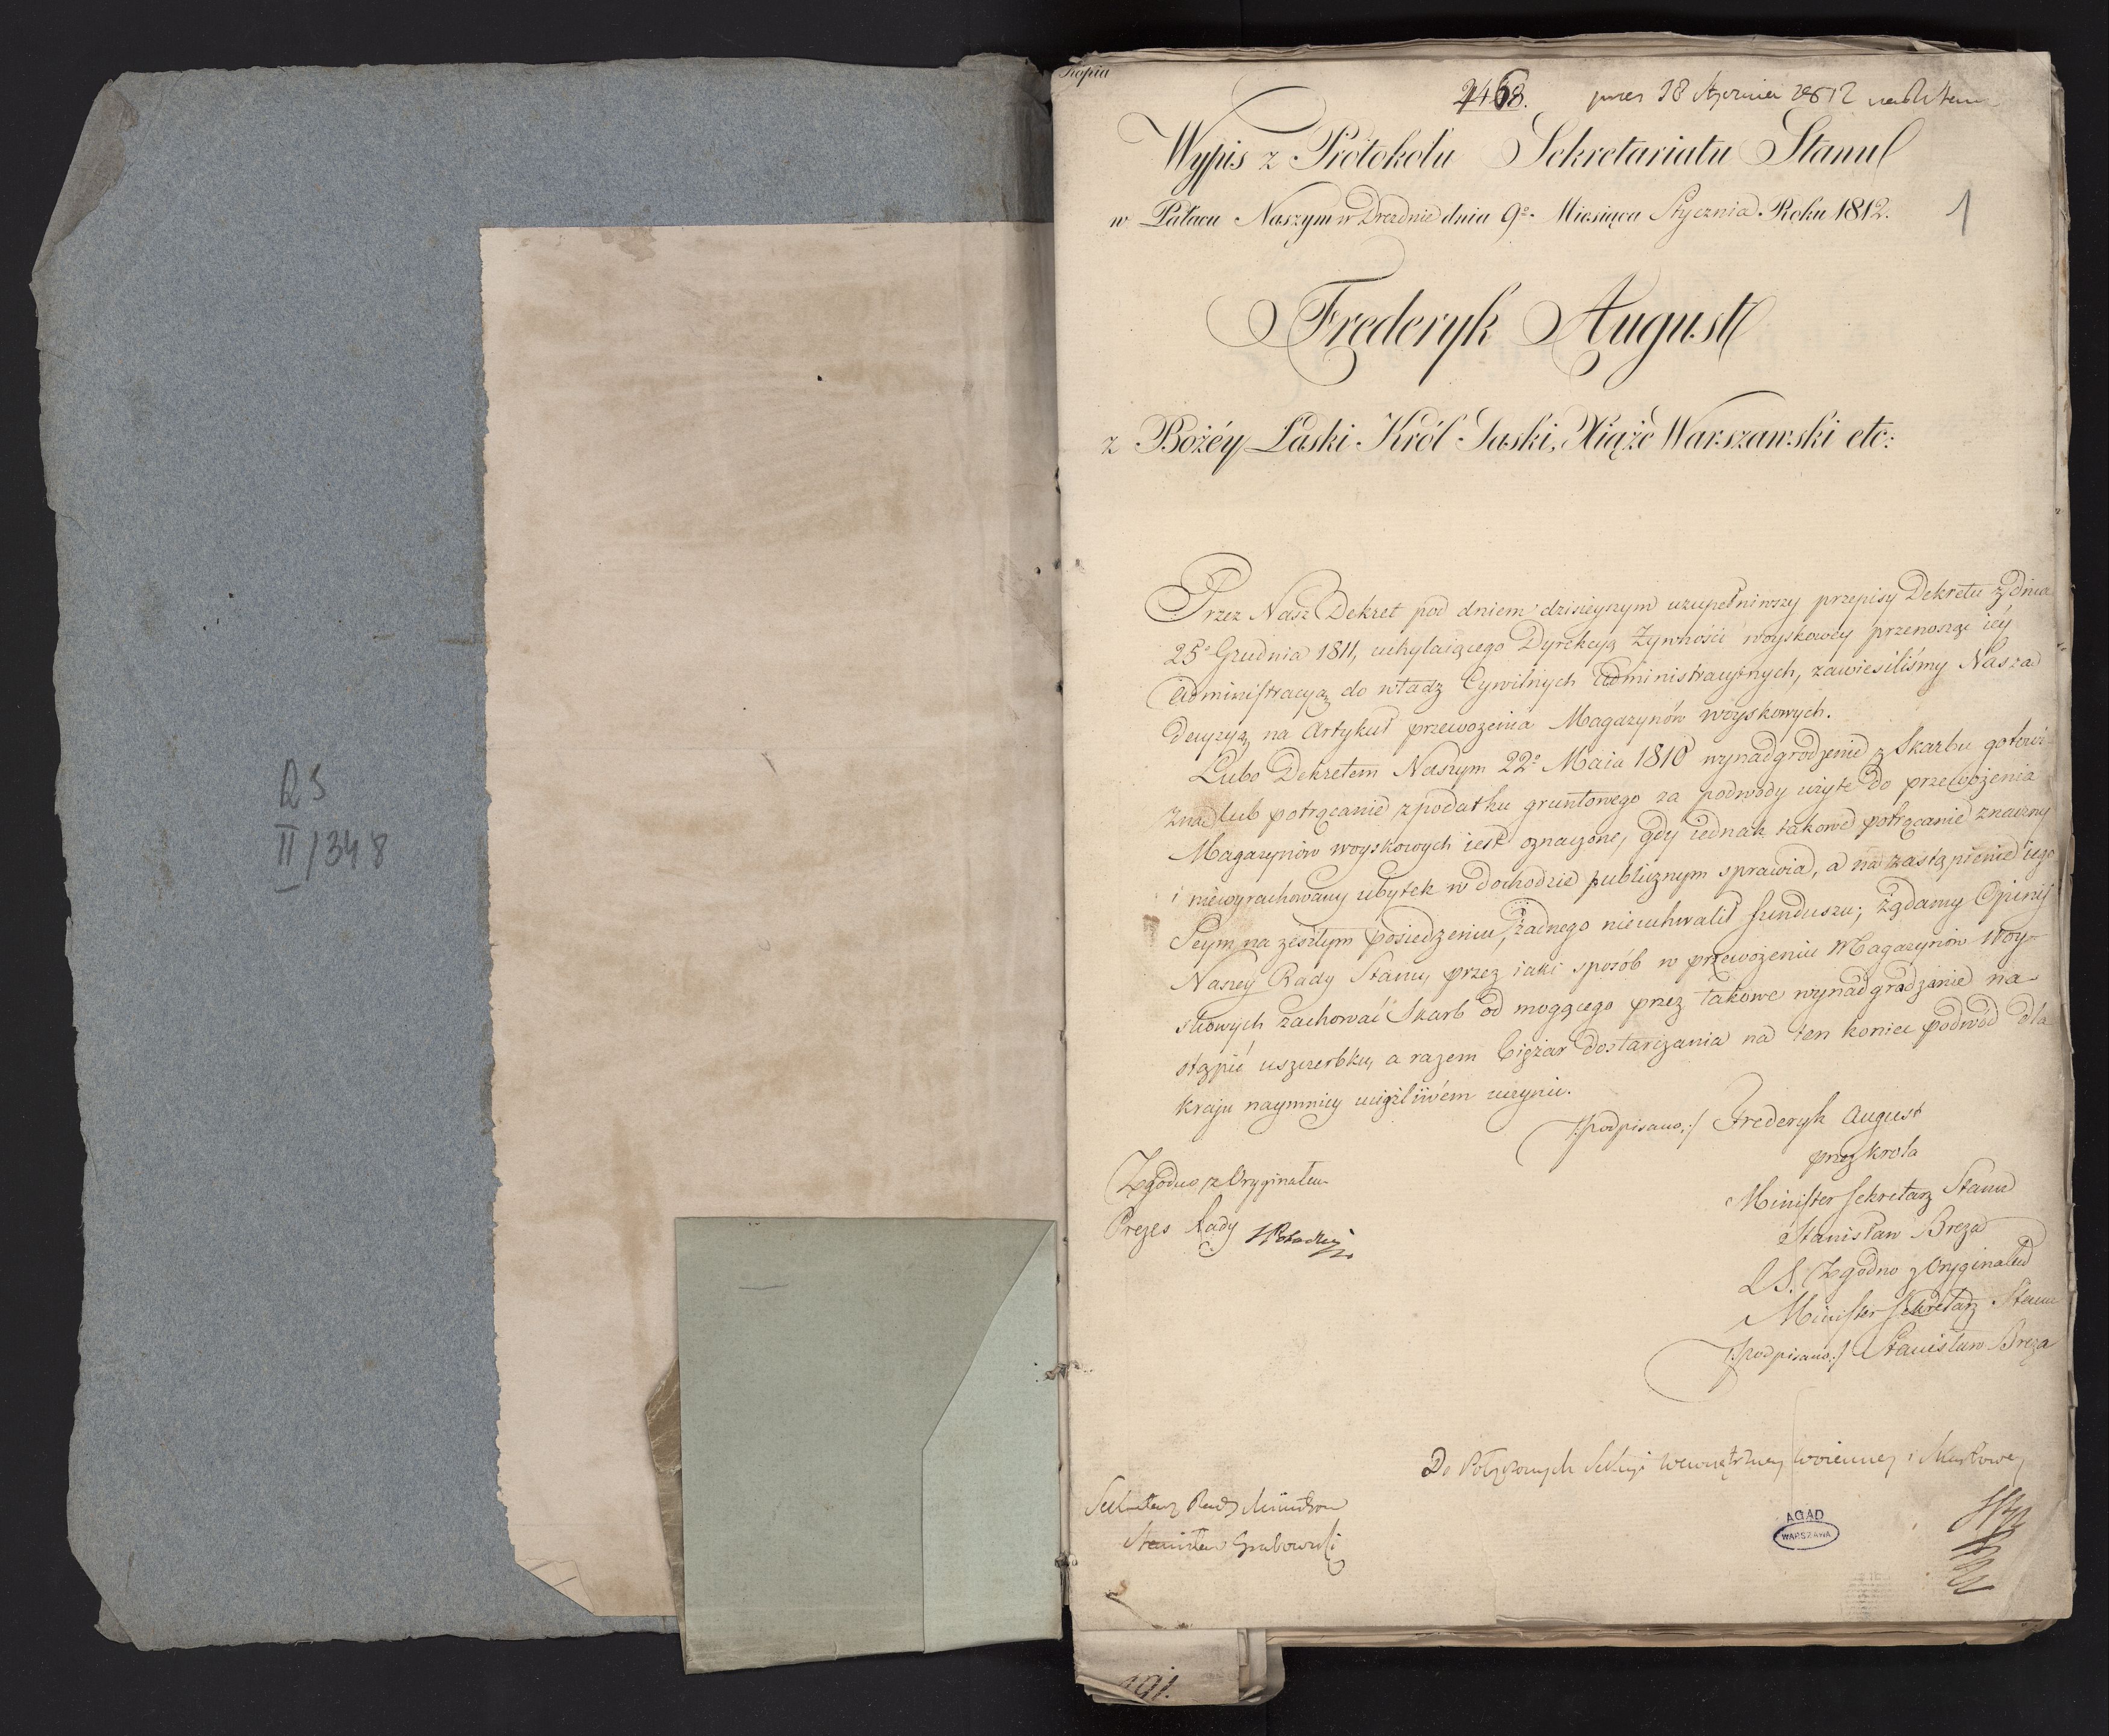 RS
II/348
Kopia
2468. prez 18 Stycznia 1812
Wypis z Protokołu Sekretariatu Stanu
w Pałacu Naszym w Dreznie dnia 9º. Miesiąca Stycznia Roku 1812.
1
Frederyk August
z Bożéy Łaski Król Saski, Xiąże Warszawski etc:
Przez Nasz Dekret pod dniem dzisieyszym uzupełniwszy przepisy Dekretu z dnia
25º Grudnia 1811, uchylaiącego Dyrekcyą Żywności woyskowéy przenosząc iéy
administracyą do władz Cywilnych administracyinych, zawiesiliśmy Nasza
decyzyą na Artykuł przewożenia Magazynów woyskowych.
Lubo Dekretem Naszym 22º Maia 1810 wynadgrodzenie z Skarbu gotowi-
zną lub potrącanie z podatku gruntowego za podwody użyte do przewożenia
Magazynów woyskowych iest oznaczone, gdy iednak takowe potrącanie znaczny
i niewyrachowany ubytek w dochodzie publicznym sprawia, a na zastąpienie iego
Seym na zeszłym posiedzeniu, żadnego nieuchwalił funduszu; żądamy Opinij
Naszey Rady Stanu, przez iaki sposób w przewożeniu Magazynów Woy-
skowych zachować Skarb od mogącego przez takowe wynadgradzanie na-
stąpić uszczerbku, a razem Ciężar dostarczania na ten koniec podwód dla
kraju naymniéy uciążliwém uczynić.
/:podpisano:/ Frederyk August
przez króla
Minister Sekretarz Stanu
Stanisław Breza
Zgodno z Oryginałem
Prezes Rady
L.S. Zgodno z Oryginałem
Minister Sekretarz Stanu
/:podpisano:/ Stanisław Breza
Do Połączonych Sekcyi Wewnętrzney woienney i Skarbowey
Sekretarz Rady Ministrów
Stanisław Grabowski
AGAD
WARSZAWA